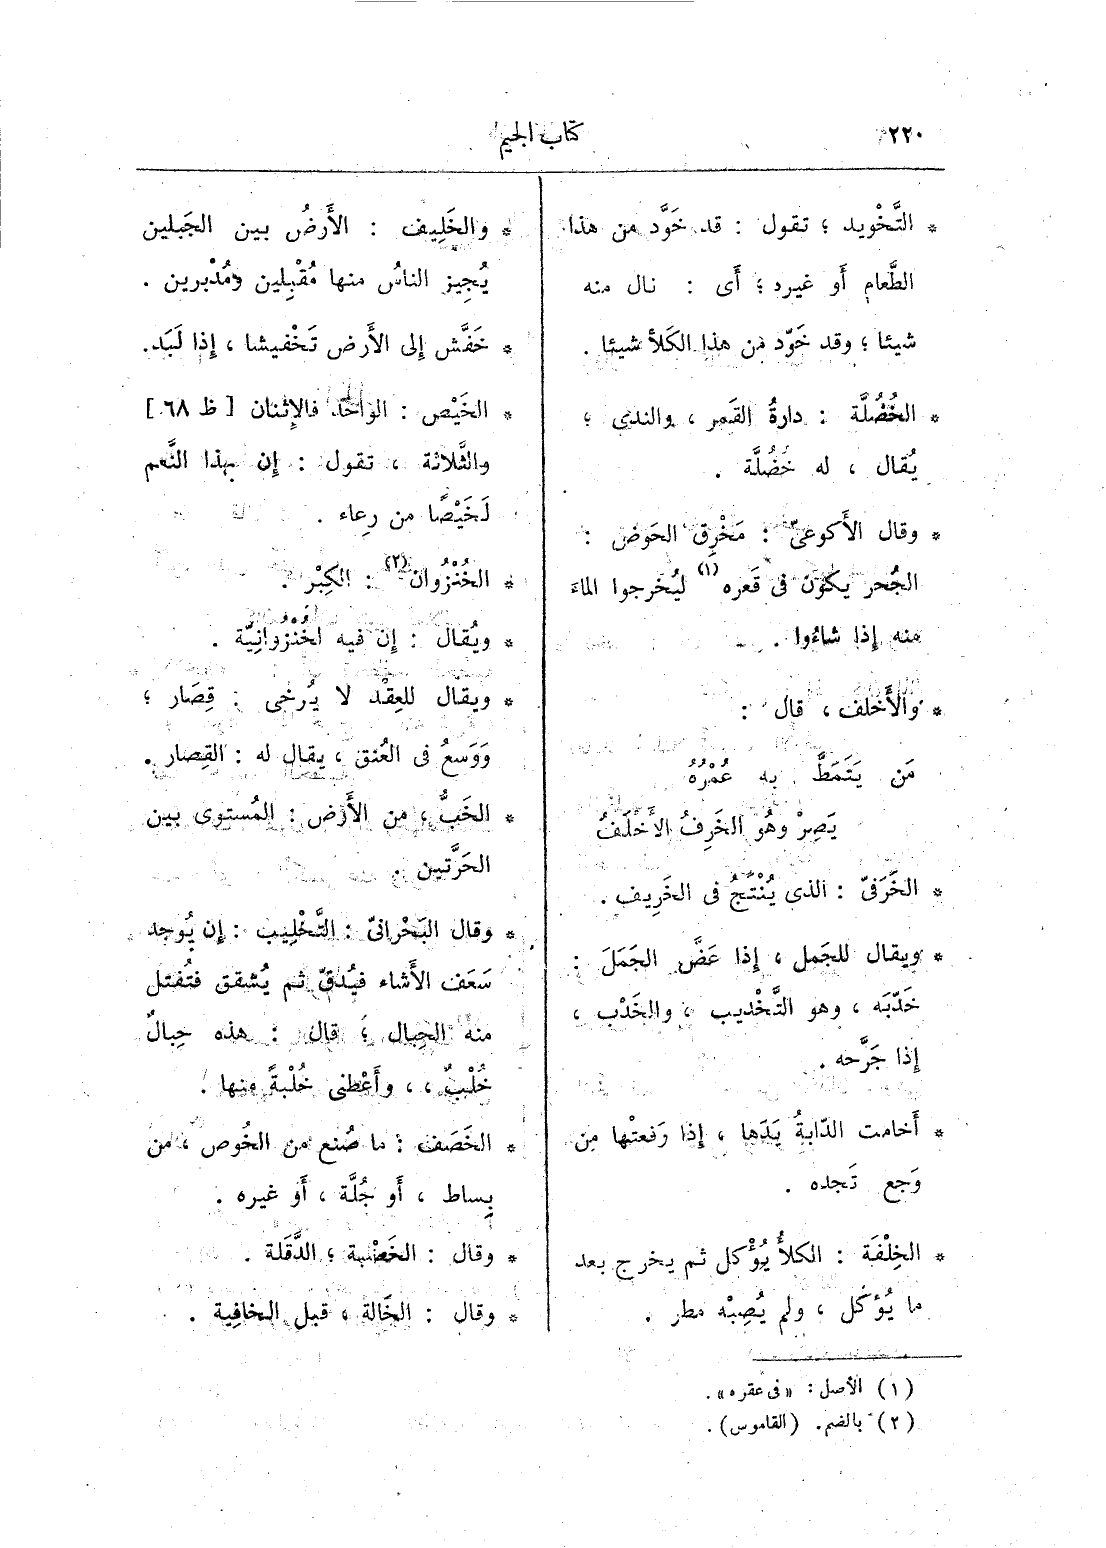 ٢٢٠
كتاب الجيم
* التَّخْويد ؛ تقول : قد خَوَّد من هذا
الطَّعام أَو غيره ؛ أَى : نال منه
شيئا ؛ وقد خَوّد من هذا الكَلأ شيئا .
* الخُضُلَّة : دارةُ القَمر ، والندى ؛
يُقال ، له خُضُلَّة .
* وقال الأَكوعىّ : مَخْرِق الحَوض :
الجُحر يكون فى قَعره (١) ليُخرجوا الماءَ
منه إِذا شاءُوا .
* والأَخلف ، قال :
مَن يَتَمَطَّ به عُمْرُهُ
يَصِرْ وهُو الخَرِفُ الأَخْلَفُ
* الخَرَفىّ : الذى يُنْتَجُ فى الخَرِيف .
* ويقال للجَمل ، إِذا عَضَّ الجَمَلَ :
خَدّبَه ، وهو التَّخْديب ، والخَدْب ،
إِذا جَرَّحه .
* أَخامت الدّابةُ يَدَها ، إِذا رَفعتْها مِن
وَجع تَجده .
* الخِلْفَة : الكلأُ يُؤْكل ثم يخرج بعد
ما يُؤكَل ، ولم يُصِبْه مطر .
* والخَلِيف : الأَرضُ بين الجَبلين
يُجيز الناسُ منها مُقْبِلين ومُدْبرين .
* خَفَّش إِلى الأَرض تَخْفيشا ، إِذا لَبَد.
* الخَيْص : الواحد فالإِثنان [ ظ ٦٨ ]
والثَّلاثة ، تقول : إِن بهذا النَّعم
لَخَيْصًا من رِعاء .
* الخُنْزُوان (٢) : الكِبْر .
* ويُقال : إِن فيه لخُنْزُوانِيّة .
* ويقال للعِقْد لا يُرخى : قِصَار ؛
وَوَسعُ فى العُنق ، يقال له : القِصار .
* الخَبُّ ، من الأَرض : المُستوى بين
الحَرَّتين .
* وقال البَحْرانىّ : التَّخْلِيب : إِن يُوجد
سَعَف الأَشاء فيُدقّ ثم يُشقق فتُفتل
منه الحِبال ؛ قال : هذه حِبالُ
خُلْبٌ ، ، وأَعْطنى خُلْبةً منها .
* الخَصَف : ما صُنع من الخُوص ، من
بِساط ، أَو جُلَّة ، أَو غيره .
* وقال : الخَصْبة ؛ الدَّقَلة .
* وقال : الخَالة ، قبل الخافِية .
(١) الأصل : «فى عقره» .
(٢) بالضم. (القاموس) .